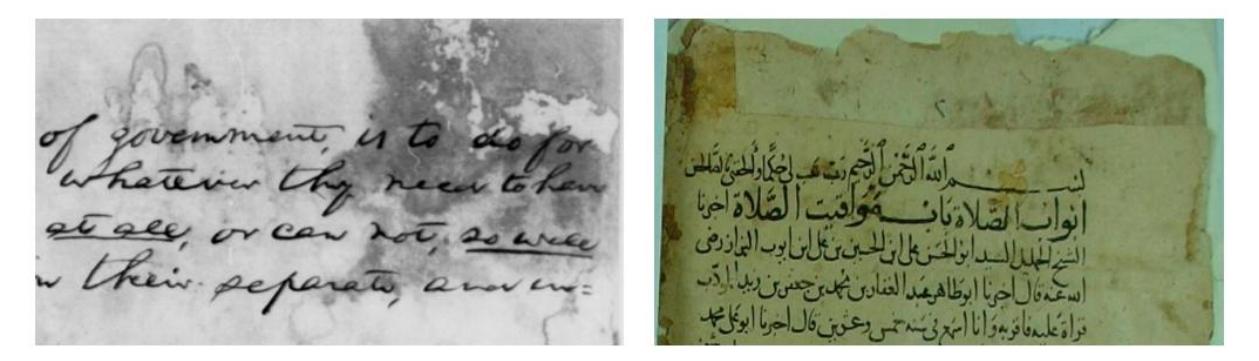 of government, is to do for
whatever they need to have
at all, or can not, so well
their separate, and in=
٢
بسم الله الرحمن الرحيم رب هب لي حكما والحقني بالصالحين
ابواب الصلاة باب مواقيت الصلاة اخبرنا
الشيخ الجليل السيد ابو الحسن علي ابن الحسين بن علي ابن ايوب البزاز رضي
الله عنه قال اخبرنا ابو طاهر عبد الغفار بن محمد بن جعفر بن زيد
قراة عليه فاقر به وانا اسمع في سنه خمس وعشرين قال اخبرنا ابو علي محمد